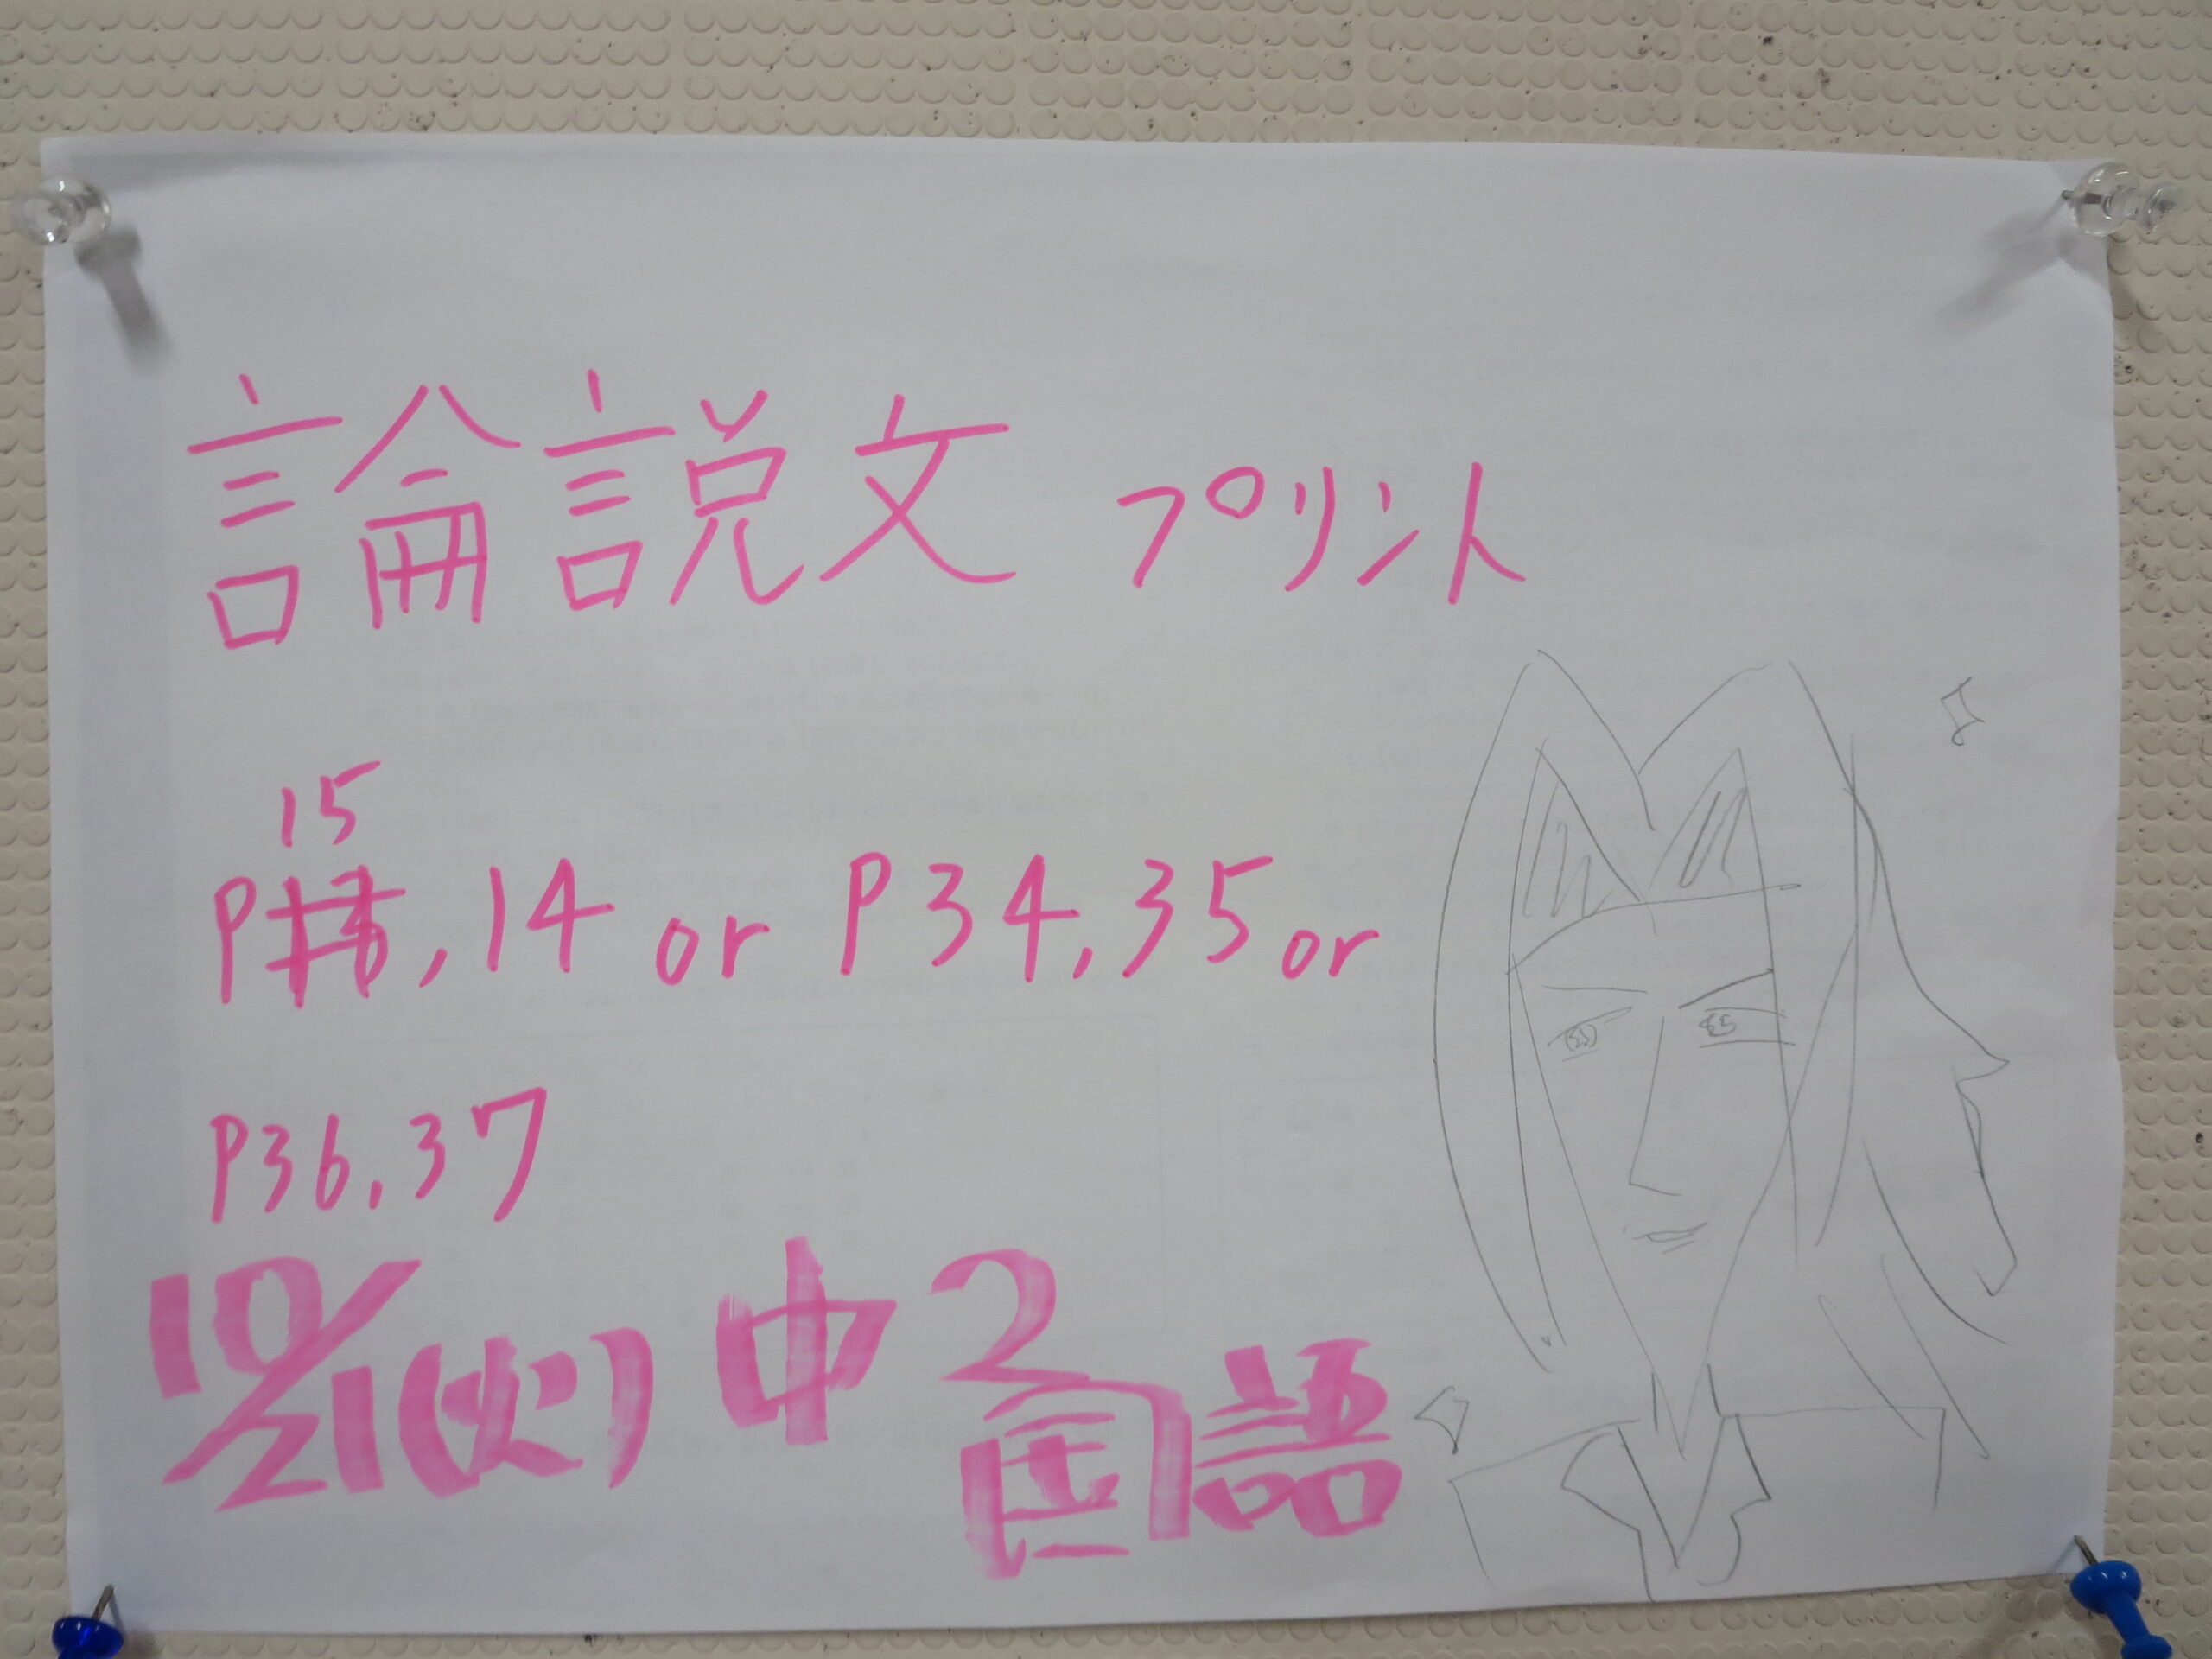 論説文 プリント
15
P , 14 or P34, 35 or
P36, 37
10/21(火) 中2
国語